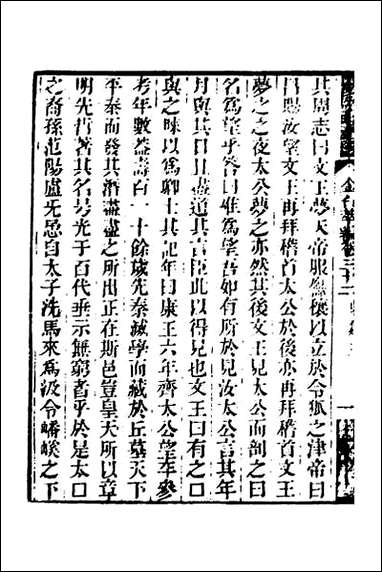 金石萃編卷二十
其周志曰文王夢天帝服禳以立於令狐之津帝曰
昌賜汝望文王再拜稽首太公於後亦再拜稽首文王
夢之之夜太公夢之亦然其後文王見太公而訓之曰
名爲望乎答曰唯爲望吾如有所於見汝太公言其年
月與其日且盡道其言臣此以得見也文王曰有之□
與之歸以爲卿士其紀年曰康王六年齊太公望卒參
考年數蓋壽百一十餘歲先秦滅學而藏於丘墓天下
平泰而發其潛書書之所出正在斯邑豈皇天所以章
明先哲著其名号光于百代垂示無窮者乎於是太□
之裔孫范陽盧无忌自太子洗馬來爲汲令磻磎之下